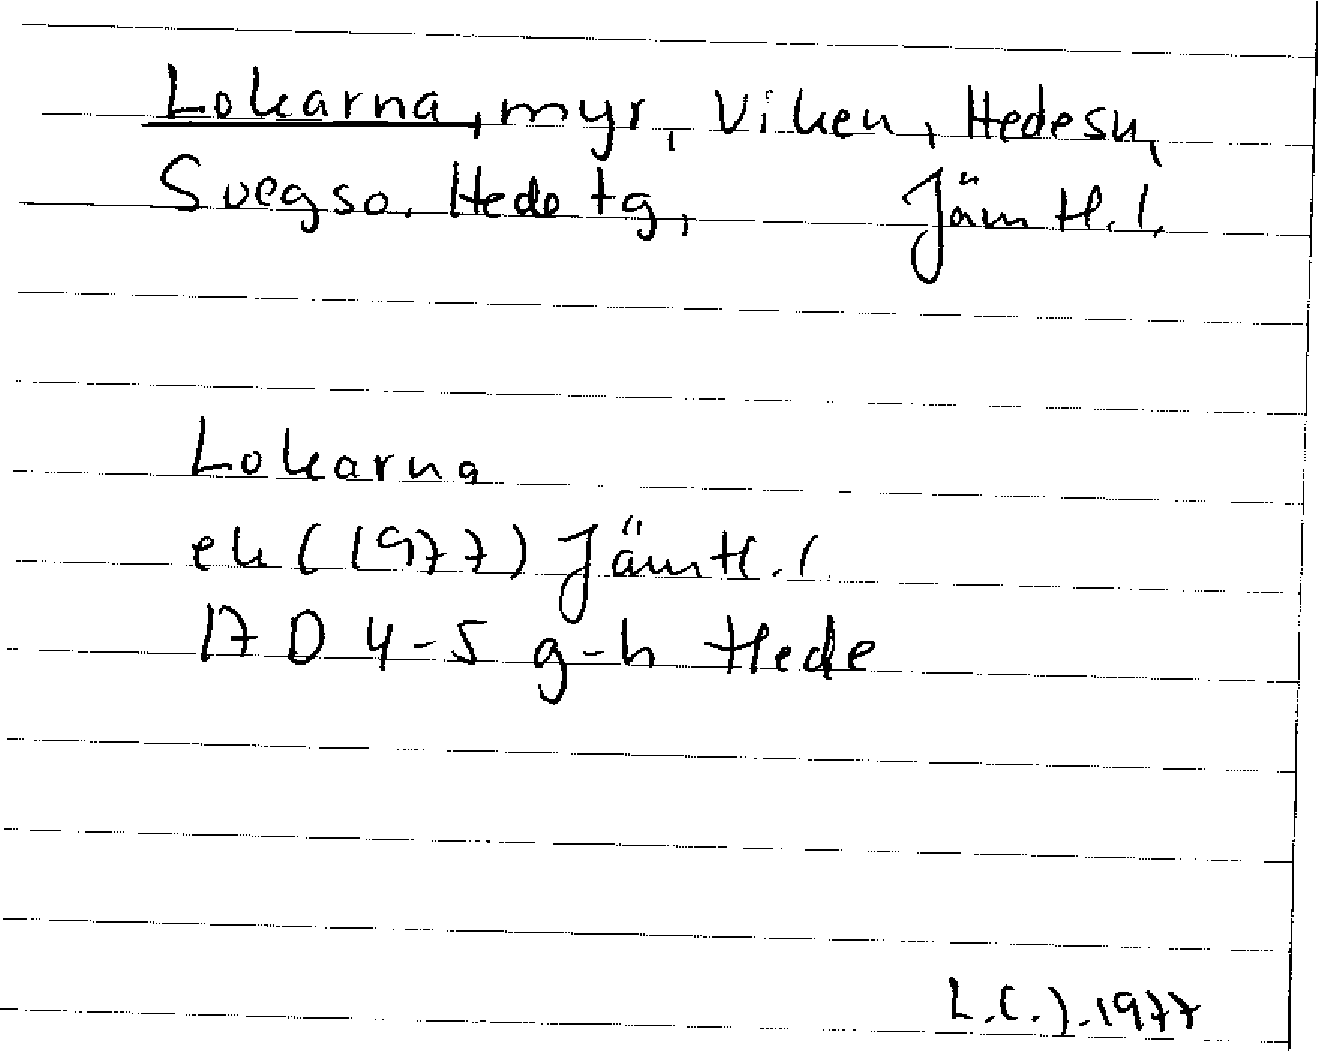 Lokarna, myr, Viken, Hedesn,
Svegso. Hede tg, Jämtl. l.
Lokarna
ek (1977) Jämtl. l
17 D 4-5 g-h Hede
L.C.J. 1977